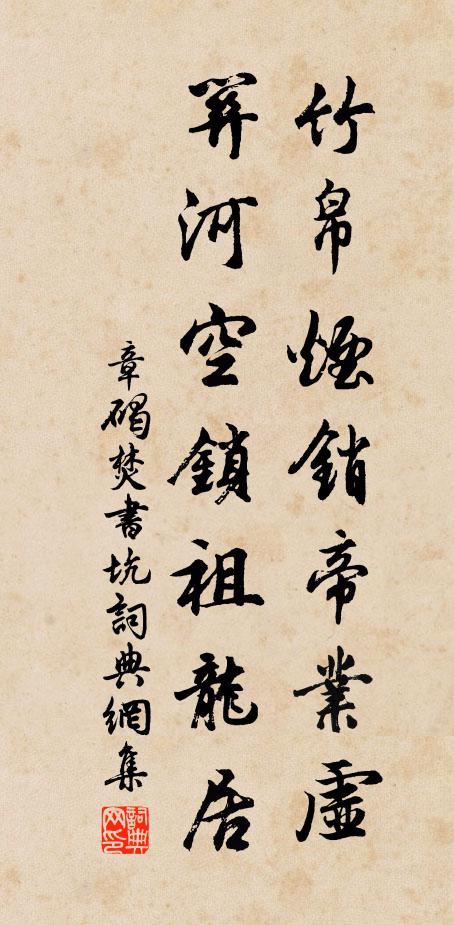 竹帛煙銷帝業虛
關河空鎖祖龍居
章碣焚書坑詞典網集
詞典
网印